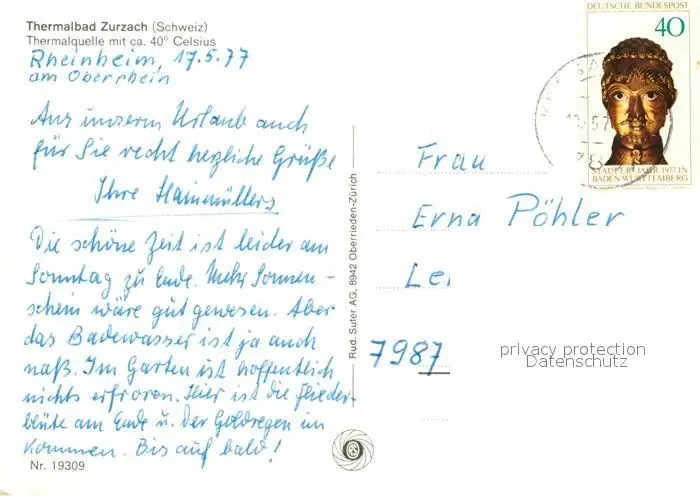 Thermalbad Zurzach (Schweiz)
Thermalquelle mit ca. 40° Celsius
Rheinheim, 17.5.77
am Oberrhein
Aus unserm Urlaub auch
für Sie recht herzliche Grüße
Ihre Hainmüllers
Die schöne Zeit ist leider am
Sonntag zu Ende. Mehr Sonnen-
schein wäre gut gewesen. Aber
das Badewasser ist ja auch
naß. Im Garten ist hoffentlich
nichts erfroren. Hier ist die Flieder-
blüte am Ende u. der Goldregen im
Kommen. Bis auf bald!
Nr. 19309
Rud. Suter AG, 8942 Oberrieden-Zürich
DEUTSCHE BUNDESPOST
40
STAUFER-JAHR 1977 IN
BADEN-WÜRTTEMBERG
Frau
Erna Pöhler
Lei
7987
privacy protection
Datenschutz